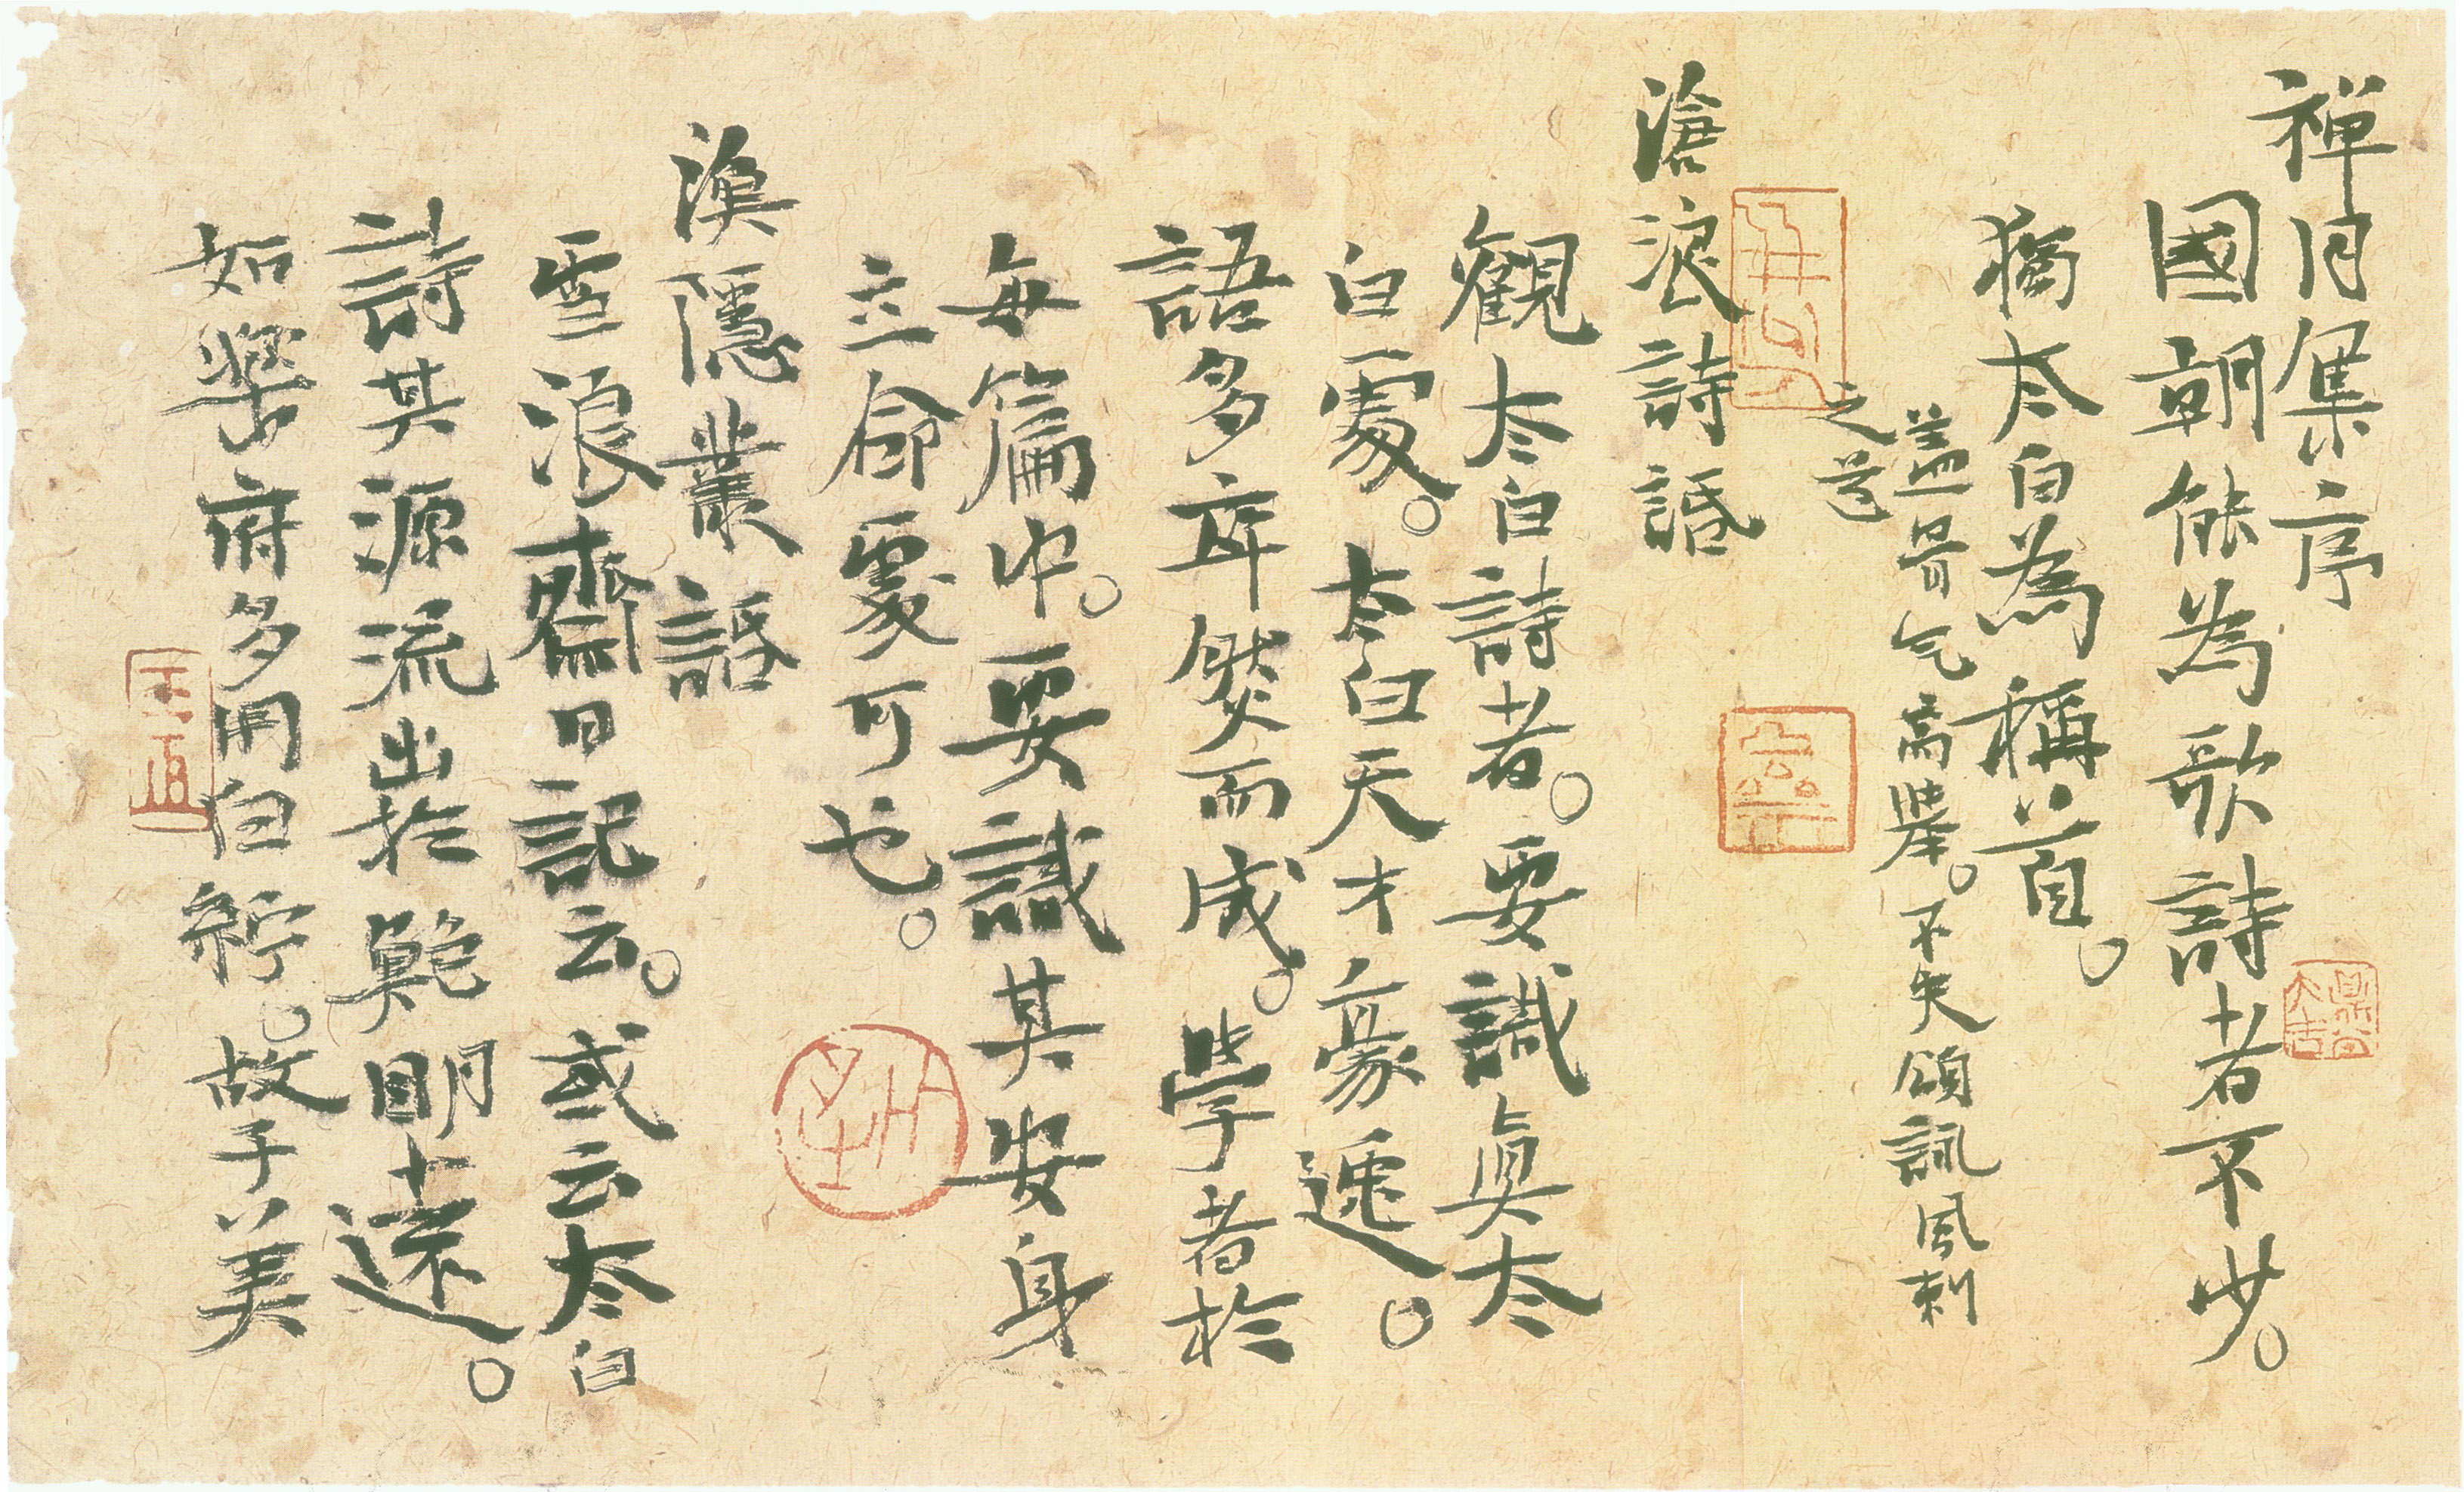 禅月集序
國朝能為歌詩者不少。
獨太白為稱首。
盖骨气高舉。不失頌詠風刺
之道
滄浪詩話
觀太白詩者。要識真太
白處。太白天才豪逸。
語多卒然而成。學者於
每篇中。要識其安身
立命處可也。
漁隱叢話
雪浪齋日記云。或云太白
詩其源流出於鮑明遠。
如樂府多用白紵。故子美